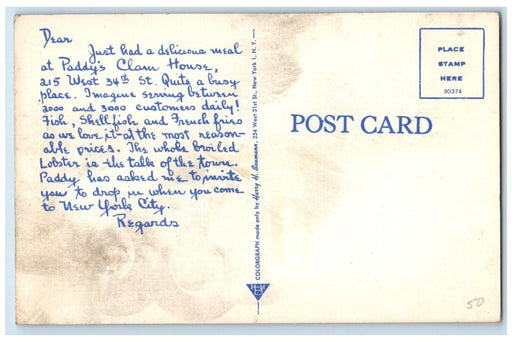 Dear
Just had a delicious meal
at Paddy's Clam House,
215 West 34th St. Quite a busy
place. Imagine serving between
2000 and 3000 customers daily!
Fish, Shellfish and French fries
as we love it-at the most reason-
able prices. The whole broiled
Lobster is the talk of the town.
Paddy has asked me to invite
you to drop in when you come
to New York City.
Regards
COLORGRAPH made only by Harry H. Baumann, 254 West 31st St., New York 1, N. Y.
POST CARD
PLACE
STAMP
HERE
90374
50